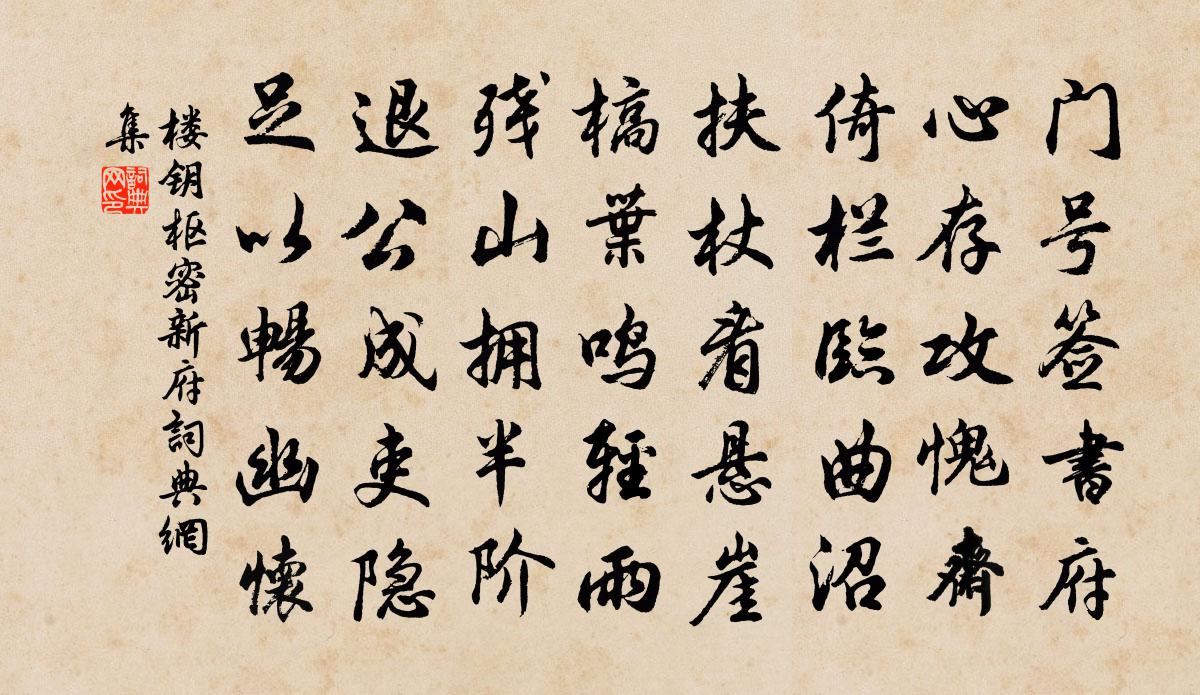 门号签書府
心存攻愧齋
倚栏臨曲沼
扶杖看悬崖
槁葉鸣輕雨
残山拥半阶
退公成吏隐
足以暢幽懷
楼钥枢密新府詞典網
集
詞典
网印